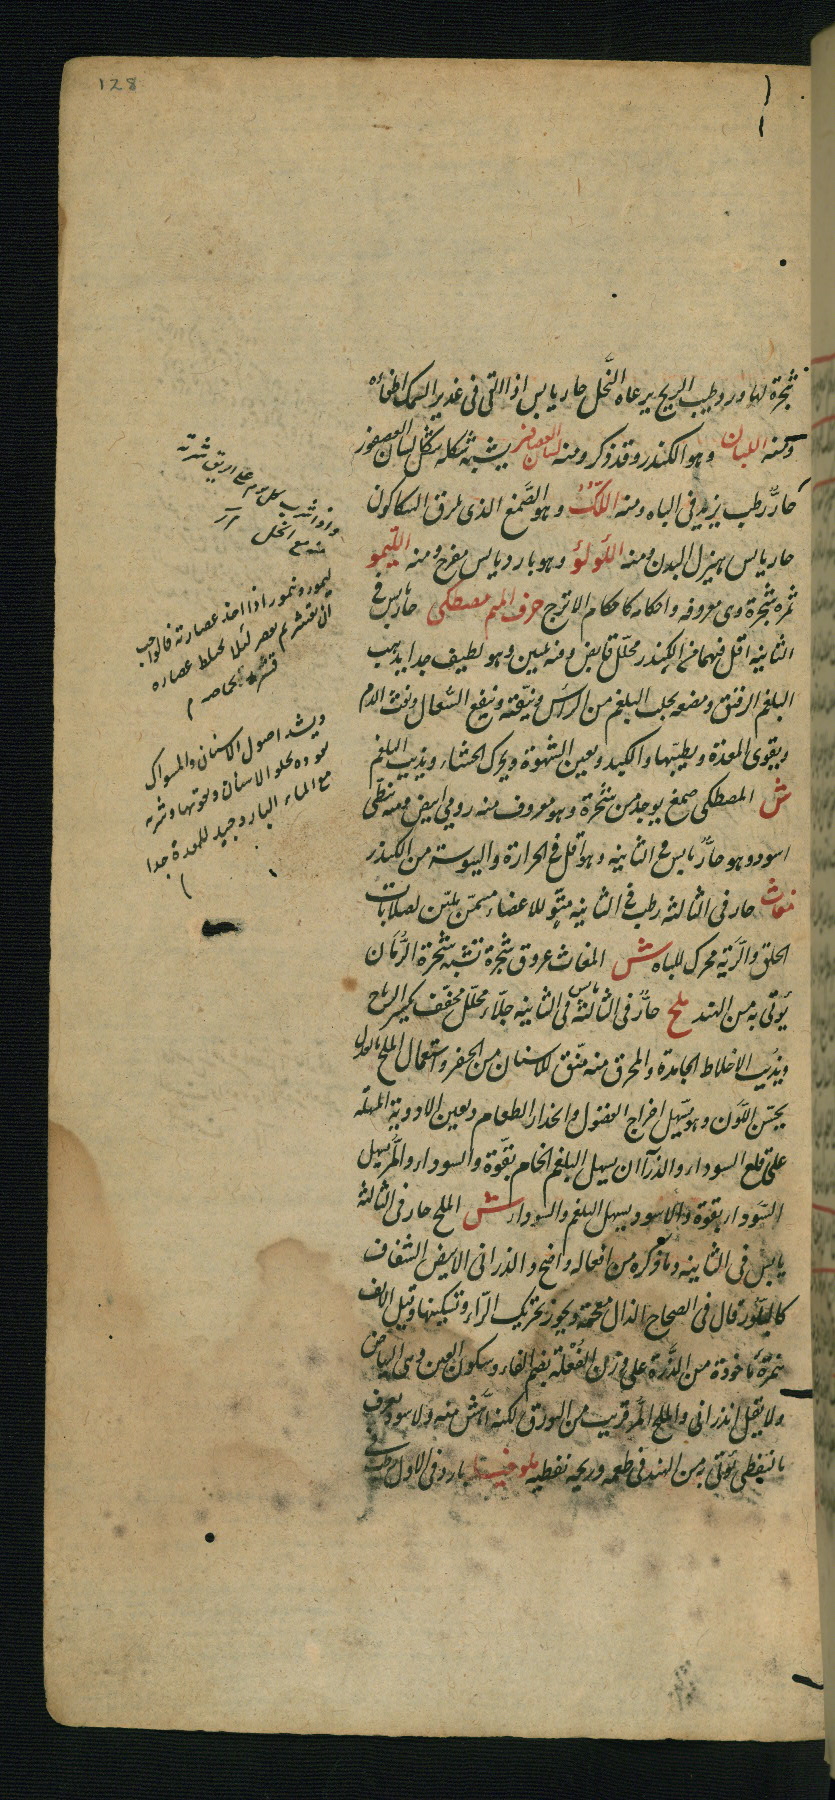 128
شجرة لها ورد طيب الريح يرعاه النحل حار يابس اذا القى فى غدير السمك اطفأه
ومنه اللبان وهو الكندر وقد ذكر ومنه لسان العصافير يشبه شكله شكل لسان العصفور
حارّ رطب يزيد فى الباه ومنه اللكّ وهو الصمغ الذى
حار يابس يهزل البدن ومنه اللؤلؤ وهو بارد يابس مفرح ومنه الليمو
ثمره شجرة وى معروفه واحكامه كاحكام الاترج حرف الميم مصطكى حار يابس فى
الثانيه اقل فيهما من الكندر محلّل قابض وفيه تليين وهو لطيف جدا يذهب
البلغم الرقيق ومضغه يجلب البلغم من الراس وينقّيه وينفع السعال ونفث الدم
ويقوى المعدة ويطيبها والكبد ويعين الشهوة ويحرك الجشاء ويذيب البلغم
ش المصطكى صمغ يوجد من شجرة وهو معروف منه رومى ابيض ومنه نبطى
اسود وهو حارّ يابس فى الثانيه وهو اقل فى الحرارة واليبوسة من الكندر
مغاث حار فى الثالثه رطب فى الثانيه مقوّ للاعضاء مسمّن مليّن لصلابات
الحلق والرّئة محرك للباه ش المغاث عروق شجرة تشبه شجرة الرّمان
يؤتى به من الهند ملح حارّ فى الثالثة يابس فى الثانيه جلّاء محلّل مجفف يكسر الرياح
ويذيب الاخلاط الجامدة والمحرق منه منقّ للاسنان من الحفر واستعمال الملح بالعدل
يحسّن اللون وهو يسهل اخراج الفضول وانحدار الطعام ويعين الادوية المسهلة
على قلع السوداء والذرآانى يسهل البلغم الخام بقوّة والسوداء والمرّ يسهل
السوداء بقوة والاسود يسهل البلغم والسوداء ش الملح حار فى الثالثة
يابس فى الثانيه وما ذكره من افعاله واضح والذرانى الابيض الشفاف
كالبلّور قال فى الصحاح الذال معجمة ويجوز تحريك الرّاء وتسكينها وقيل الالف
ماخوذة من الذرءة على وزن الفُعلة بضم الفاء وسكون العين وهى البياض
ولا يقل انذرانى والملح المر قريب من البورق لكنه منه والاسود يعرف
بالنفطى يؤتى به من الهند فى طعمه وريحه نفطيه ملوخيا بارد فى الاول رطب فى
واذا شرب كل يوم على الريق شربة
منه مع الخل
ليمو اذا اخذ عصارته فالواجب
ان يقشر ثم يعصر لئلا يختلط عصاره
قشره بحامضه
ويشد اصول الاسنان والمسواك
بعوده يجلو الاسنان ويقويها وشربه
مع الماء البارد جيد للمعدة جدا